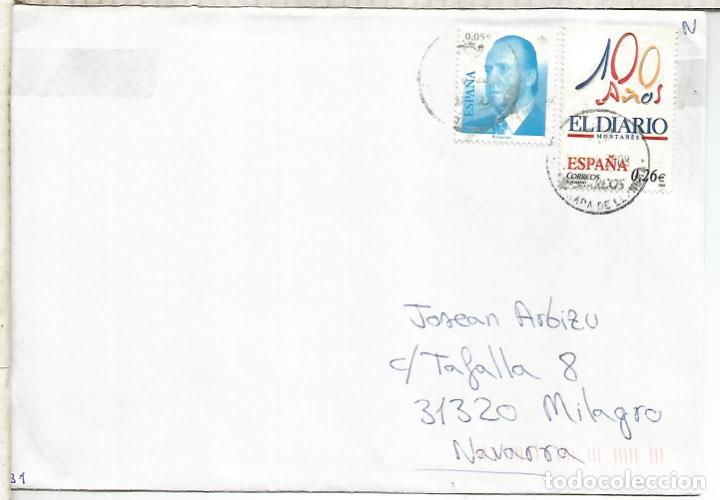 N
0.05€
ESPAÑA
100
Años
EL DIARIO
MONTAÑÉS
ESPAÑA
CORREOS
0,26€
Josean Arbizu
c/ Tafalla 8
31320 Milagro
Navarra
31
todocoleccion.net